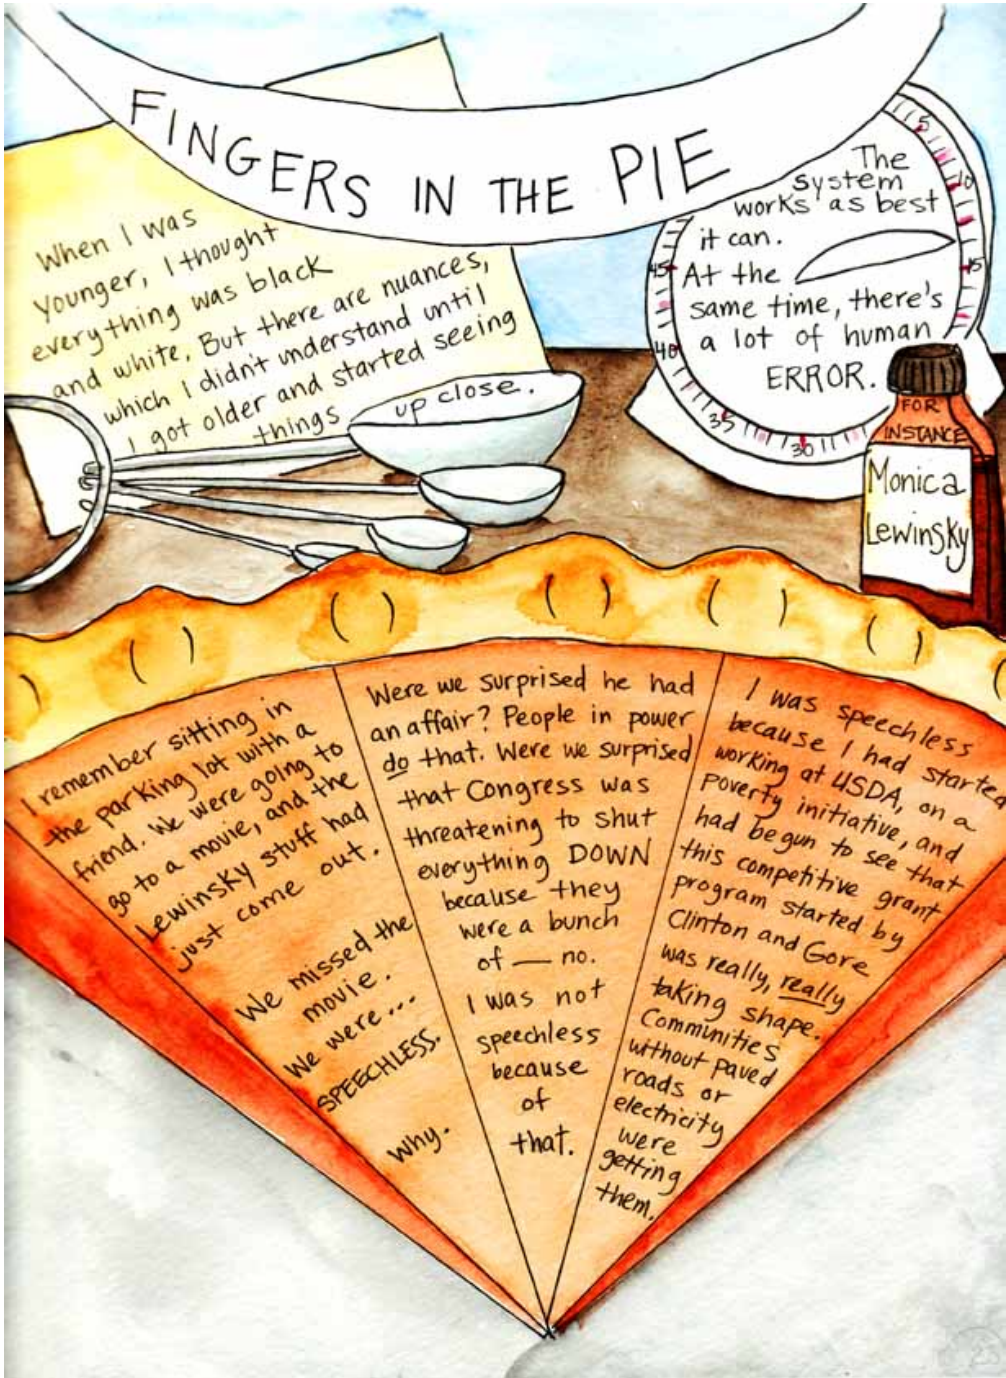 FINGERS IN THE PIE
When I was
younger, I thought
everything was black
and white. But there are nuances,
which I didn't understand until
I got older and started seeing
things up close.
The
system
works as best
it can.
At the
same time, there's
a lot of human
ERROR.
5
10
15
30
35
40
45
FOR
INSTANCE
Monica
Lewinsky
I remember sitting in
the parking lot with a
friend. We were going to
go to a movie, and the
Lewinsky stuff had
just come out.
We missed the
movie.
We were...
SPEECHLESS.
Why.
Were we surprised he had
an affair? People in power
do that. Were we surprised
that Congress was
threatening to shut
everything DOWN
because they
were a bunch
of — no.
I was not
speechless
because
of
that.
I was speechless
because I had started
working at USDA, on a
poverty initiative, and
had begun to see that
this competitive grant
program started by
Clinton and Gore
was really, really
taking shape.
Communities
without paved
roads or
electricity
were
getting
them.